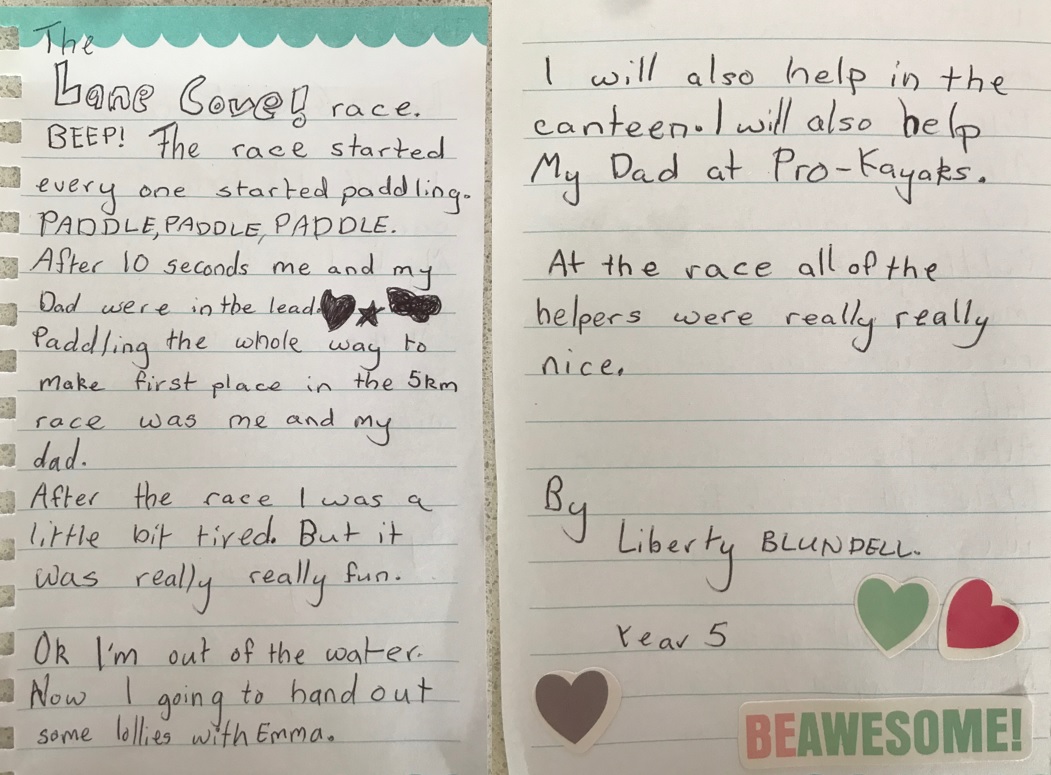 The
Lane Cove! race.
BEEP! The race started
every one started paddling.
PADDLE, PADDLE, PADDLE.
After 10 seconds me and my
Dad were in the lead.
Paddling the whole way to
make first place in the 5km
race was me and my
dad.
After the race I was a
little bit tired. But it
was really really fun.
Ok I'm out of the water.
Now I going to hand out
some lollies with Emma.
I will also help in the
canteen. I will also help
My Dad at Pro-Kayaks.
At the race all of the
helpers were really really
nice.
By
Liberty BLUNDELL.
Year 5
BEAWESOME!